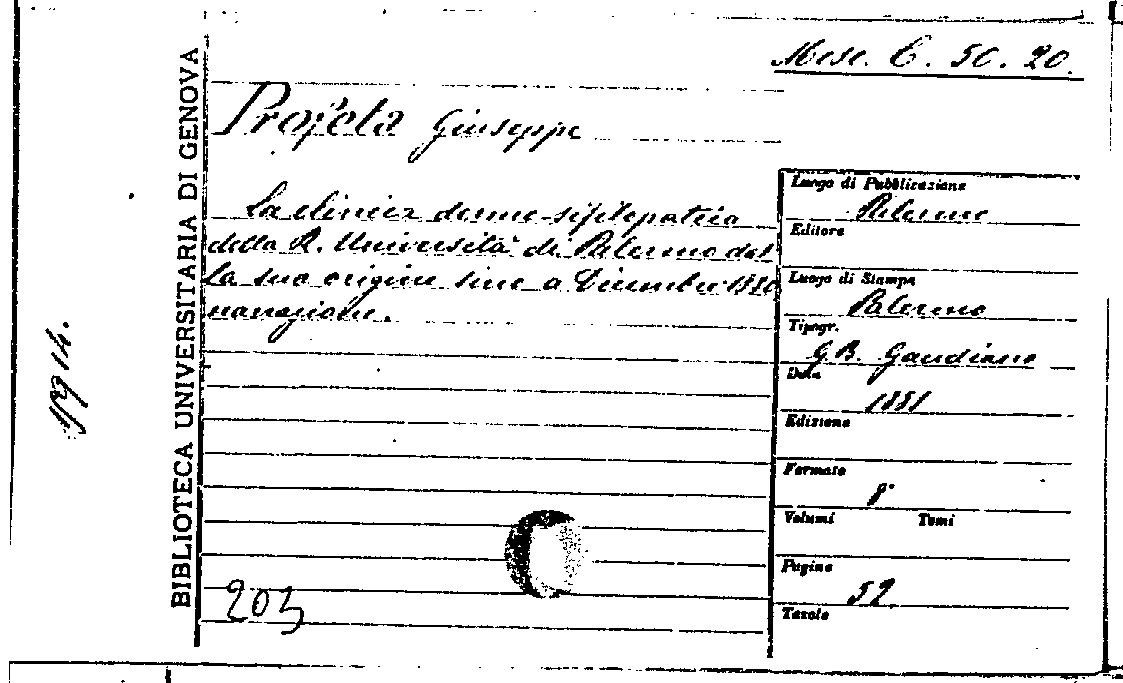 Misc. C. 50. 20.
Profeta Giuseppe
La clinica dermo-sifilopatica
della R. Università di Palermo dal
la sua origine sino a Dicembre 1880
narrazione.
203
BIBLIOTECA UNIVERSITARIA DI GENOVA
Luogo di Pubblicazione
Palermo
Editore
Luogo di Stampa
Palermo
Tipogr.
G.B. Gaudiano
Data
1881
Edizione
Formato
8°
Volumi Tomi
Pagine
52
Tavole